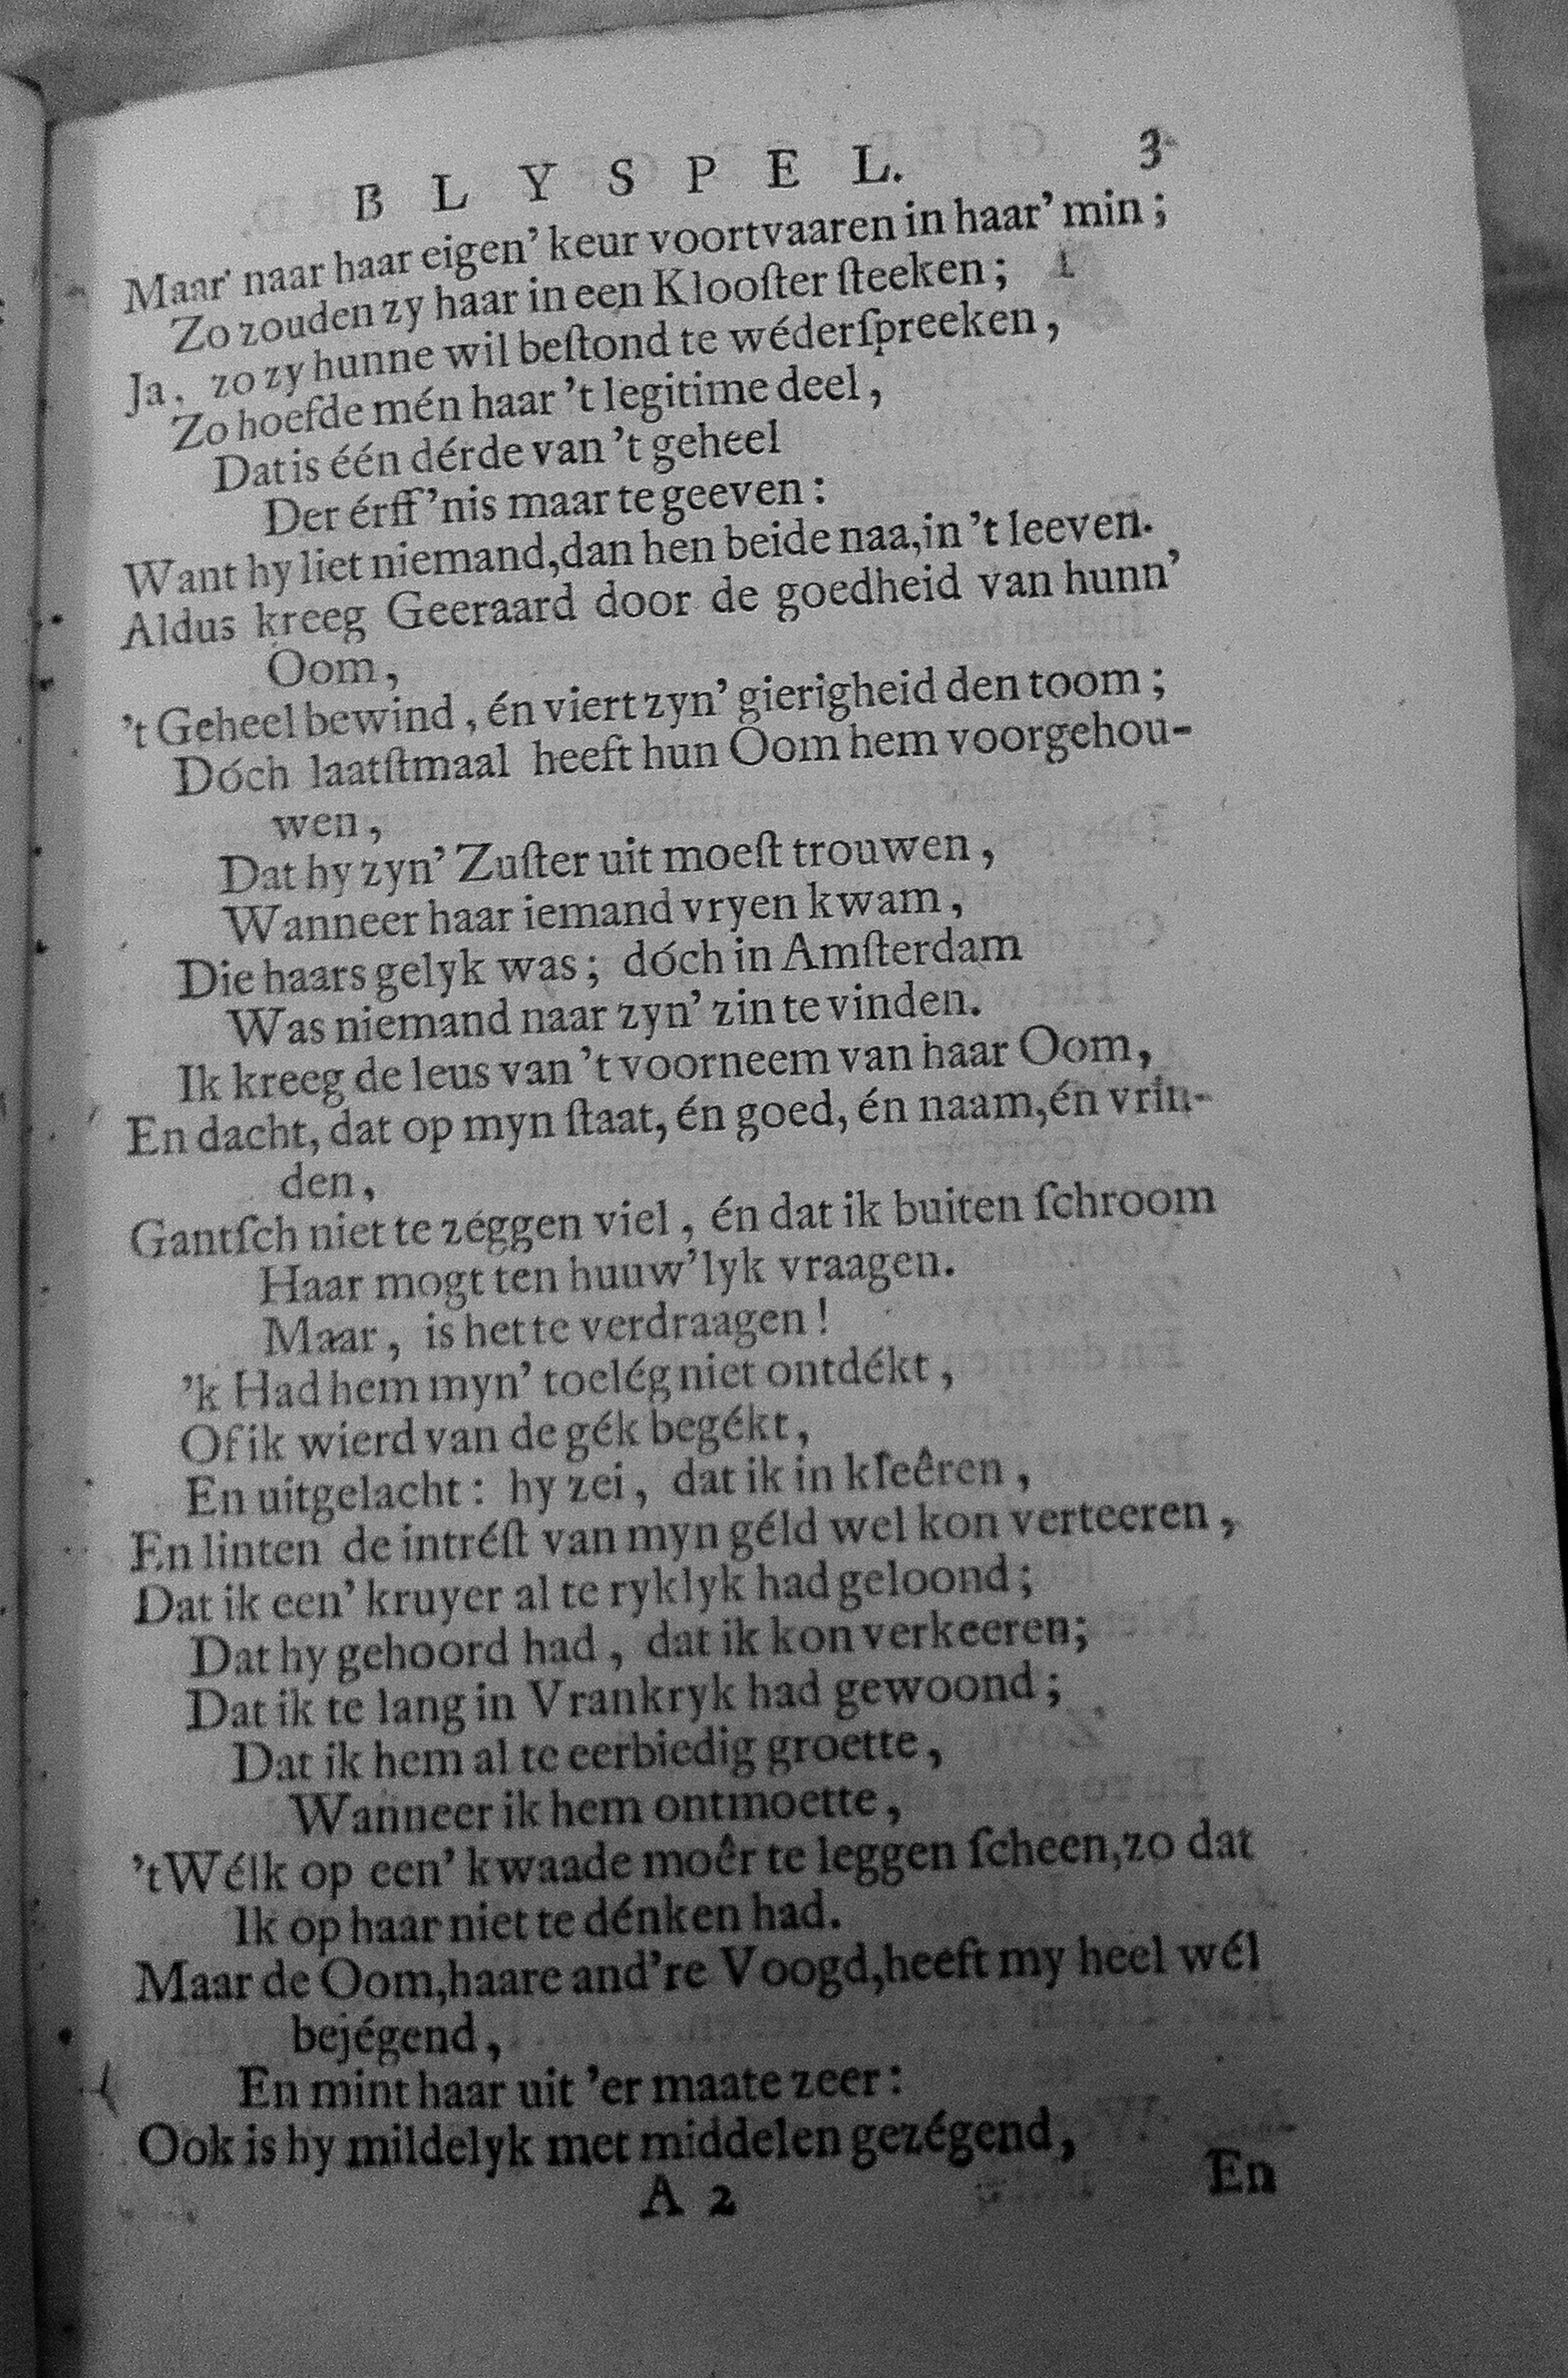 BLYSPEL. 3
Maar naar haar eigen' keur voortvaaren in haar' min;
Zo zouden zy haar in een Klooſter ſteeken;
Ja, zo zy hunne wil beſtond te wéderſpreeken,
Zo hoefde mén haar 't legitime deel,
Dat is één dérde van 't geheel
Der érff'nis maar te geeven:
Want hy liet niemand, dan hen beide naa, in 't leeven.
Aldus kreeg Geeraard door de goedheid van hunn'
Oom,
't Geheel bewind, én viert zyn' gierigheid den toom;
Dóch laatſtmaal heeft hun Oom hem voorgehou-
wen,
Dat hy zyn' Zuſter uit moeſt trouwen,
Wanneer haar iemand vryen kwam,
Die haars gelyk was; dóch in Amſterdam
Was niemand naar zyn' zin te vinden.
Ik kreeg de leus van 't voorneem van haar Oom,
En dacht, dat op myn ſtaat, én goed, én naam, én vrin-
den,
Gantſch niet te zéggen viel, én dat ik buiten ſchroom
Haar mogt ten huuw'lyk vraagen.
Maar, is het te verdraagen!
'k Had hem myn' toelég niet ontdékt,
Of ik wierd van de gék begékt,
En uitgelacht: hy zei, dat ik in kleêren,
En linten de intréſt van myn géld wel kon verteeren,
Dat ik een' kruyer al te ryklyk had geloond;
Dat hy gehoord had, dat ik kon verkeeren;
Dat ik te lang in Vrankryk had gewoond;
Dat ik hem al te eerbiedig groette,
Wanneer ik hem ontmoette,
't Wélk op een' kwaade moêr te leggen ſcheen, zo dat
Ik op haar niet te dénken had.
Maar de Oom, haare and're Voogd, heeft my heel wél
bejégend,
En mint haar uit 'er maate zeer:
Ook is hy mildelyk met middelen gezégend,
A 2 En